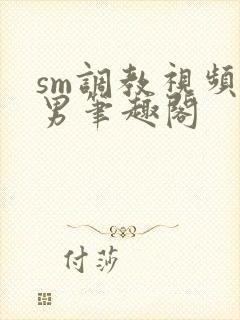 sm調教視頻
男筆趣閣
付莎